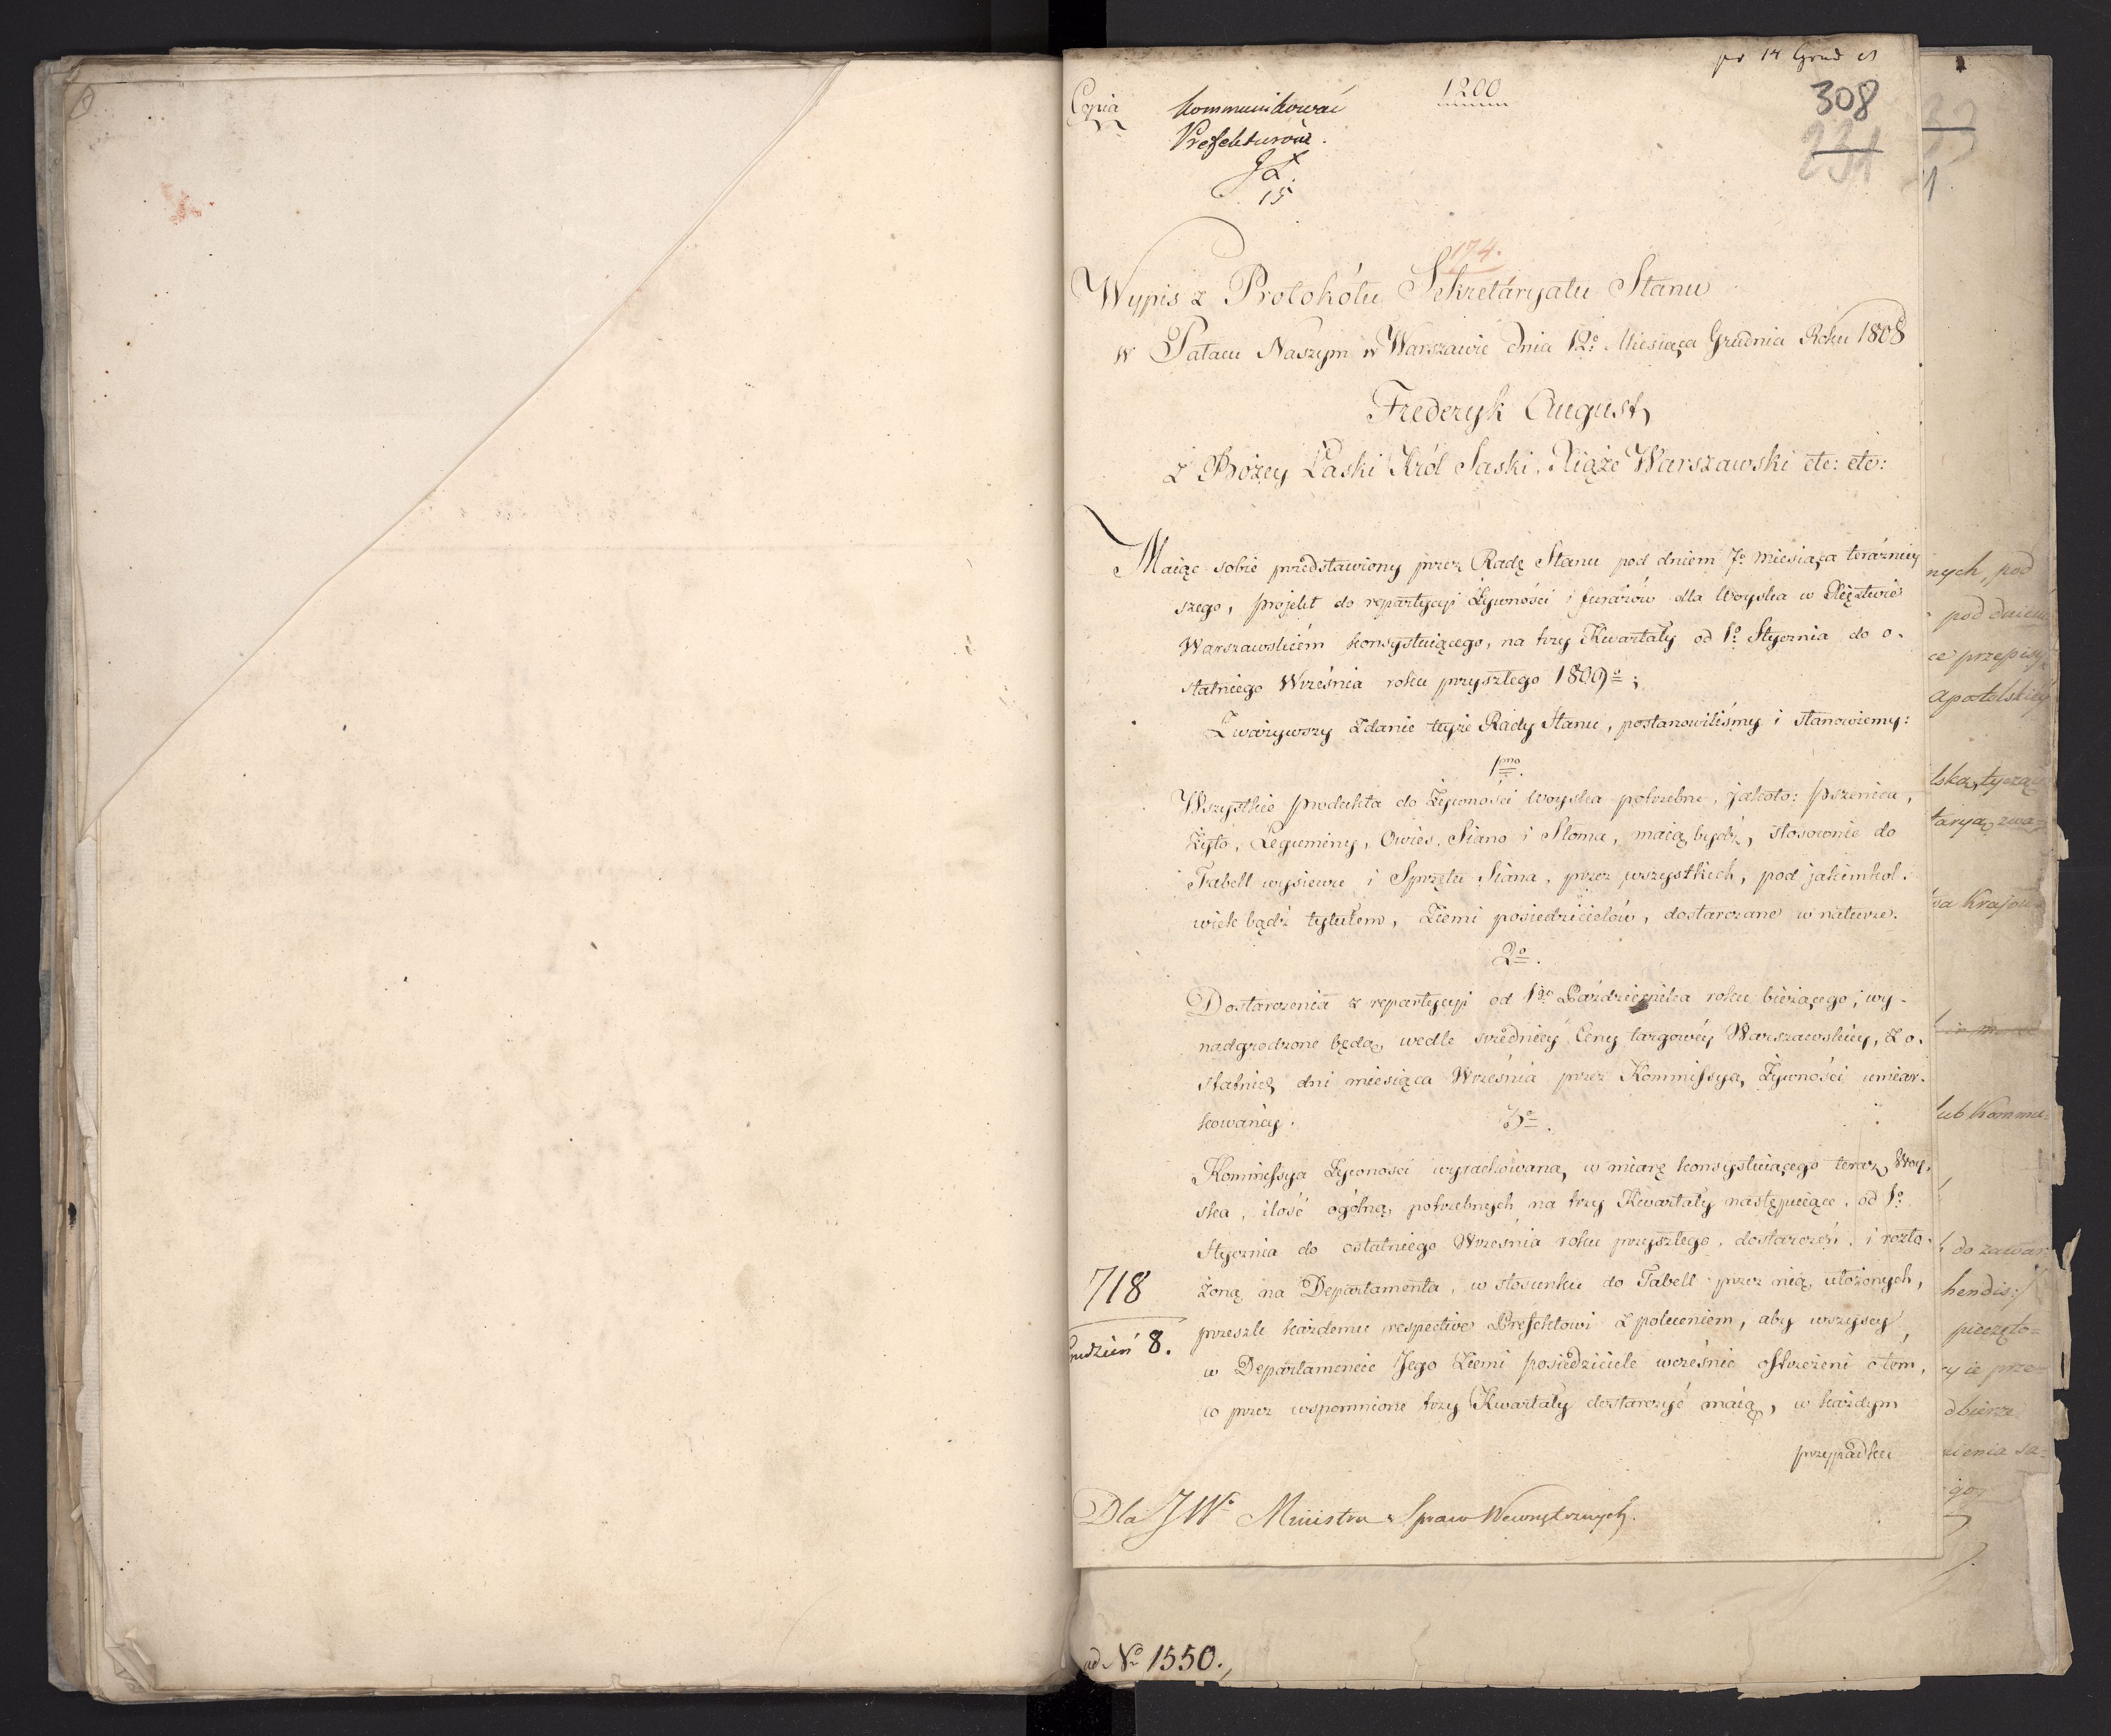 pr 14 Grud
308
231
Copia
Kommunikować
Prefekturom.
15
1200
174.
Wypis z Protokółu Sekretáryatu Stanu
w Pałacu Naszym w Warszawie dnia 12º Miesiąca Grudnia Roku 1808
Frederyk August,
z Bożey Łaski Król Saski, Xiąże Warszawski etc: etc:
Maiąc sobie przedstawiony przez Radę Stanu pod dniem 7º miesiąca teraźniey
szego, projekt do repartycyi Żywności i furażów dla Woyska w Xięztwie
Warszawskiém konsystuiącego, na trzy Kwartały od 1º Stycznia do o-
statniego Września roku przyszłego 1809º;
Zważywszy zdanie teyże Rady Stanu, postanowiliśmy i stanowiemy:
1mo.
Wszystkie produkta do Żywności Woyska potrzebne, jakoto: pszenica,
żyto, Leguminy, Owies, Siano i Słoma, maią bydź, stosownie do
Tabell wysiewu i Sprzętu Siana, przez wszystkich, pod jakiemkol-
wiek bądź tytułem, Ziemi posiedzicielów, dostarczane w naturze.
2º.
Dostarczenia z repartycyi od 1go Października roku bieżącego, wy-
nadgrodzone będą, wedle średniey Ceny targowéy Warszawskiey, z o-
statnich dni miesiąca Września przez Kommissyą Żywności umiar-
kowanéy.
3º.
Kommissya Żywności wyrachowaną, w miarę konsystuiącego teraz Woy-
ska, ilość ogólną, potrzebnych na trzy Kwartały następuiące, od 1º
Stycznia do ostatniego Września roku przyszłego, dostarczeń, i rozło-
żoną na Departamenta, w stosunku do Tabell przez nią ułożonych,
przeszle każdemu respective Prefektowi z poleceniem, aby wszyscy
w Departamencie Jego Ziemi posiedziciele wcześnie ostrzeżeni o tem,
co przez wspomnione trzy Kwartały dostarczyć maią, w każdym
przypadku
718
Grudzień 8.
Dla JWº Ministra Spraw Wewnętrznych.
ad Nº 1550.
nych, pod
pod dniem
ce przepisy
Apostolskiey
lską, tyczą
taryą, zwa=
wa Krajow
lub Kommu
do zawar
hendis:/
pieczęto=
cy ie prze=
dbierze
zienia sa=
go